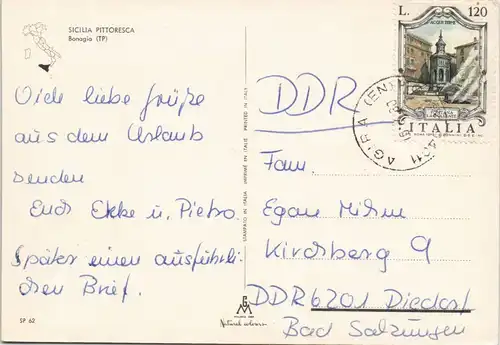 SICILIA PITTORESCA
Bonagia (TP)
Viele liebe Grüße
aus dem Urlaub
senden
Euch Ekke u. Pietro
Später einen ausführli-
chen Brief.
SP 62
STAMPATO IN ITALIA IMPRIMÉ EN ITALIE PRINTED IN ITALY
Natural colours
L. 120
ACQUI TERME
ITALIA
AGIRA (EN)
DDR
Fam.
Egon Mihm
Kirchberg 9
DDR 6201 Diedorf
Bad Salzungen